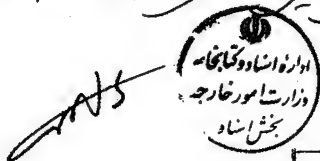 ادارهٔ اسناد و کتابخانه
وزارت امور خارجه
بخش اسناد